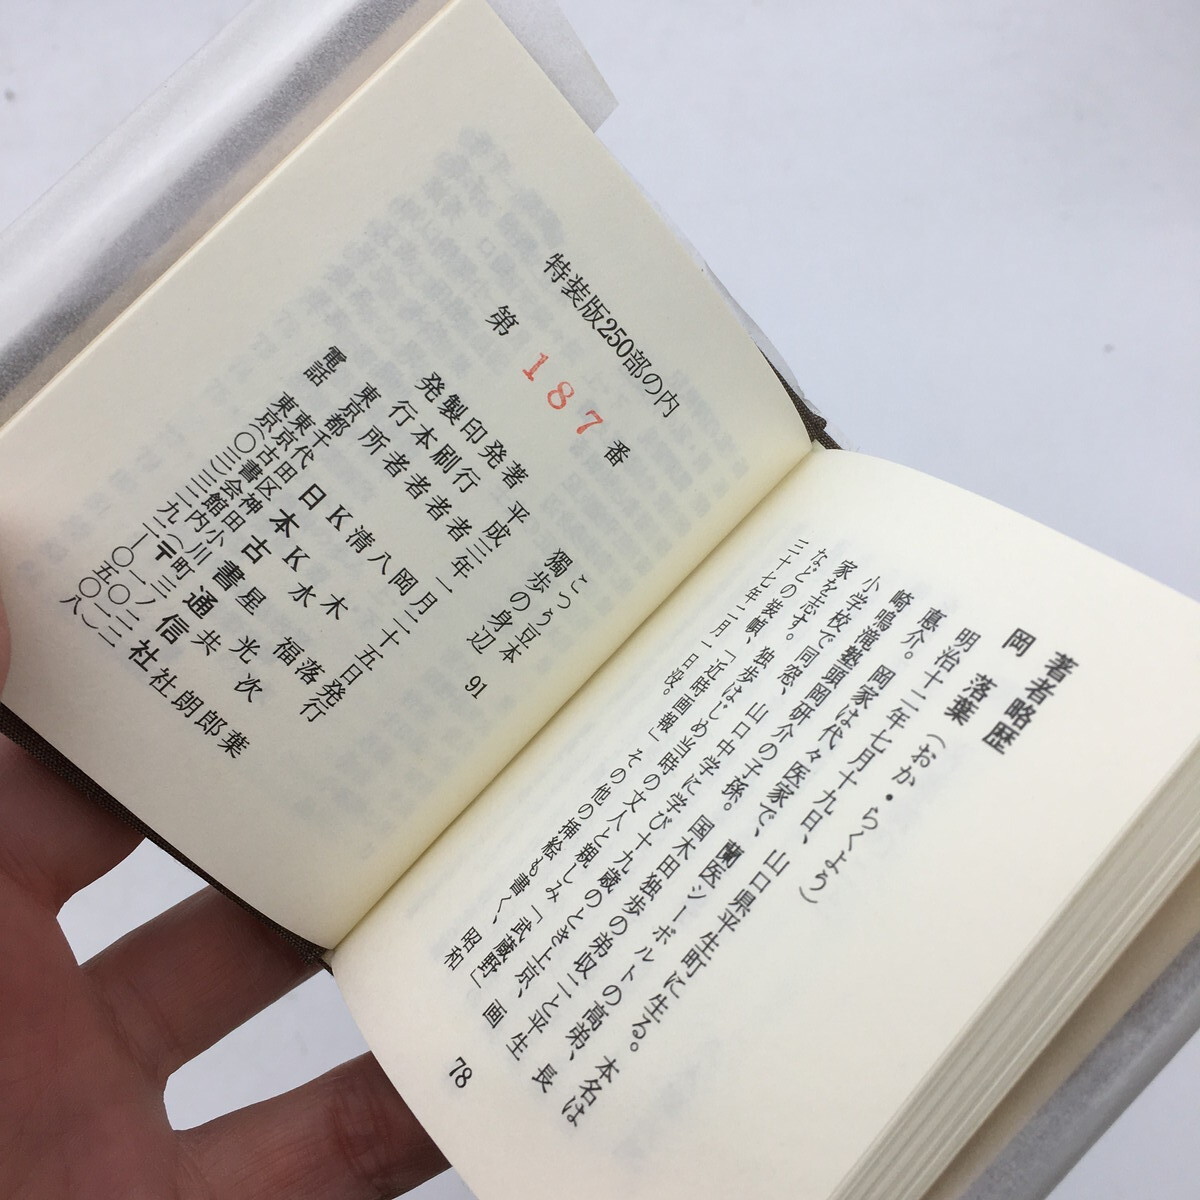 著者略歴
岡　落葉（おか・らくよう）
明治十二年七月十九日、山口県平生町に生る。本名は
悳介。岡家は代々医家で、蘭医シーボルトの高弟、長
崎鳴滝塾頭岡研介の子孫。国木田独歩の弟収二と平生
小学校で同窓、山口中学に学び十九歳のとき上京、画
家を志す。独歩はじめ当時の文人と親しみ「武蔵野」
などの装幀、「近時画報」その他の挿絵も書く、昭和
三十七年二月一日没。
78
特装版250部の内
第 187 番
こつう豆本 91
獨歩の身辺
平成三年一月二十五日発行
著者 岡 落葉
発行者 八木福次郎
印刷者 清水光朗
製本者 KK 星共社
発行所 日本古書通信社
東京都千代田区神田小川町三ノ二二
東京古書会館内（〒一〇一）
電話 東京（〇三）三二九二ー〇五〇八